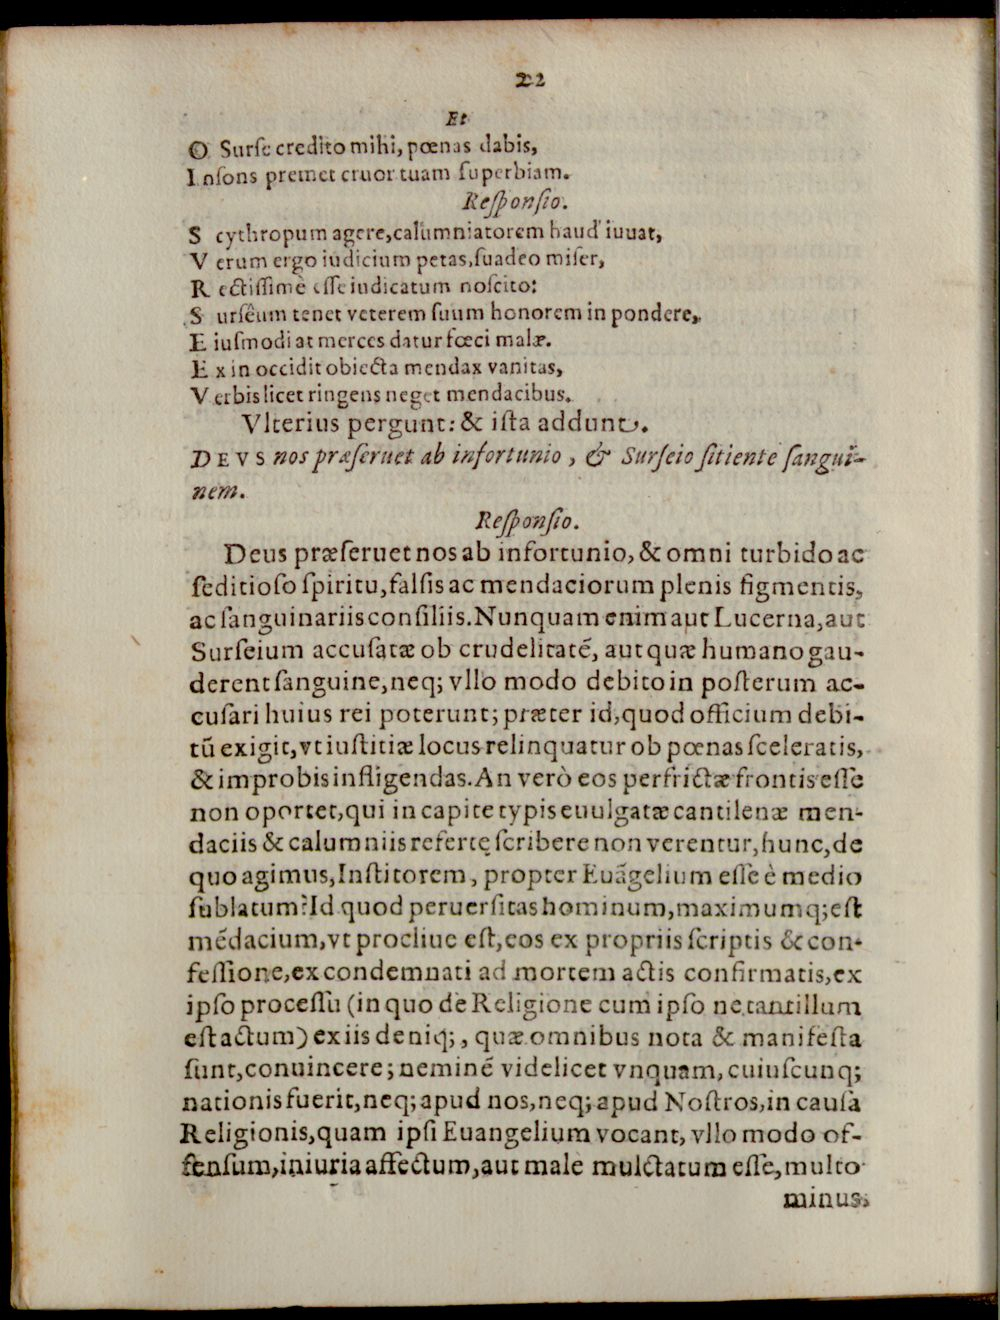 22
Et
O Surſe credito mihi, pœnas dabis,
Inſons premet cruor tuam ſuperbiam.
Reſponſio.
S cythropum agere, calumniatorem haud iuuat,
V erum ergo iudicium petas, ſuadeo miſer,
R ectiſſimè eſſe iudicatum noſcito:
S urſêum tenet veterem ſuum honorem in pondere,
E iuſmodi at merces datur fœci malæ.
E x in occidit obiecta mendax vanitas,
V erbis licet ringens neget mendacibus.
Vlterius pergunt: & iſta addunt.
DEVS nos præſeruet ab infortunio, & Surſeio ſitiente ſangui-
nem.
Reſponſio.
Deus præſeruet nos ab infortunio, & omni turbido ac
ſeditioſo ſpiritu, falſis ac mendaciorum plenis figmentis,
ac ſanguinariis conſiliis. Nunquam enim aut Lucerna, aut
Surſeium accuſatæ ob crudelitatē, aut quæ humano gau-
derent ſanguine, neq; vllo modo debito in poſterum ac-
cuſari huius rei poterunt; præter id, quod officium debi-
tū exigit, vt iuſtitiæ locus relinquatur ob pœnas ſceleratis,
& improbis infligendas. An verò eos perfrictæ frontis eſſe
non oportet, qui in capite typis euulgatæ cantilenæ men-
daciis & calumniis refertę ſcribere non verentur, hunc, de
quo agimus, Inſtitorem, propter Euāgelium eſſe è medio
ſublatum? Id quod peruerſitas hominum, maximumq; eſt
mēdacium, vt procliue eſt, eos ex propriis ſcriptis & con-
feſſione, ex condemnati ad mortem actis confirmatis, ex
ipſo proceſſu (in quo de Religione cum ipſo ne tantillum
eſt actum) ex iis deniq;, quæ omnibus nota & manifeſta
ſunt, conuincere; neminē videlicet vnquam, cuiuſcunq;
nationis fuerit, neq; apud nos, neq; apud Noſtros, in cauſa
Religionis, quam ipſi Euangelium vocant, vllo modo of-
fenſum, iniuria affectum, aut male mulctatum eſſe, multo
minus,